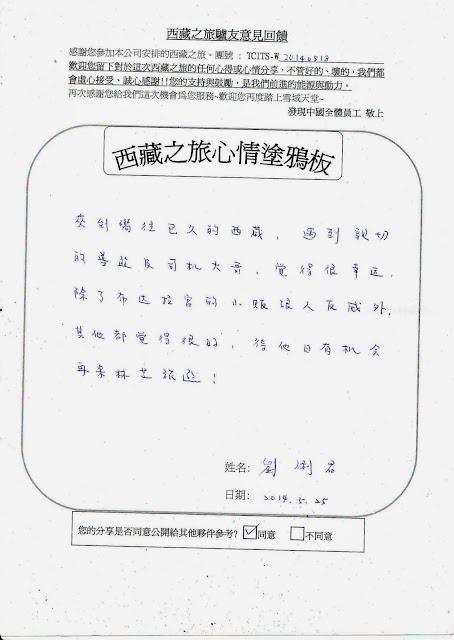 西藏之旅驢友意見回饋
感謝您參加本公司安排的西藏之旅。團號：TCITS-W 20140518
歡迎您留下對於這次西藏之旅的任何心得或心情分享，不管好的、壞的，我們都
會虛心接受、誠心感謝!!您的支持與鼓勵，是我們前進的能源與動力。
再次感謝您給我們這次機會為您服務~歡迎您再度踏上雪域天堂~
發現中國全體員工 敬上
西藏之旅心情塗鴉板
來到嚮往已久的西藏，遇到親切
的導遊及司机大哥，覺得很幸运．
除了布达拉宫的小販讓人反感外，
其他都覺得很好，待他日有机会
再來林芝旅遊！
姓名: 劉 君
日期: 2014.5.25
您的分享是否同意公開給其他夥伴參考? ☑同意 □不同意